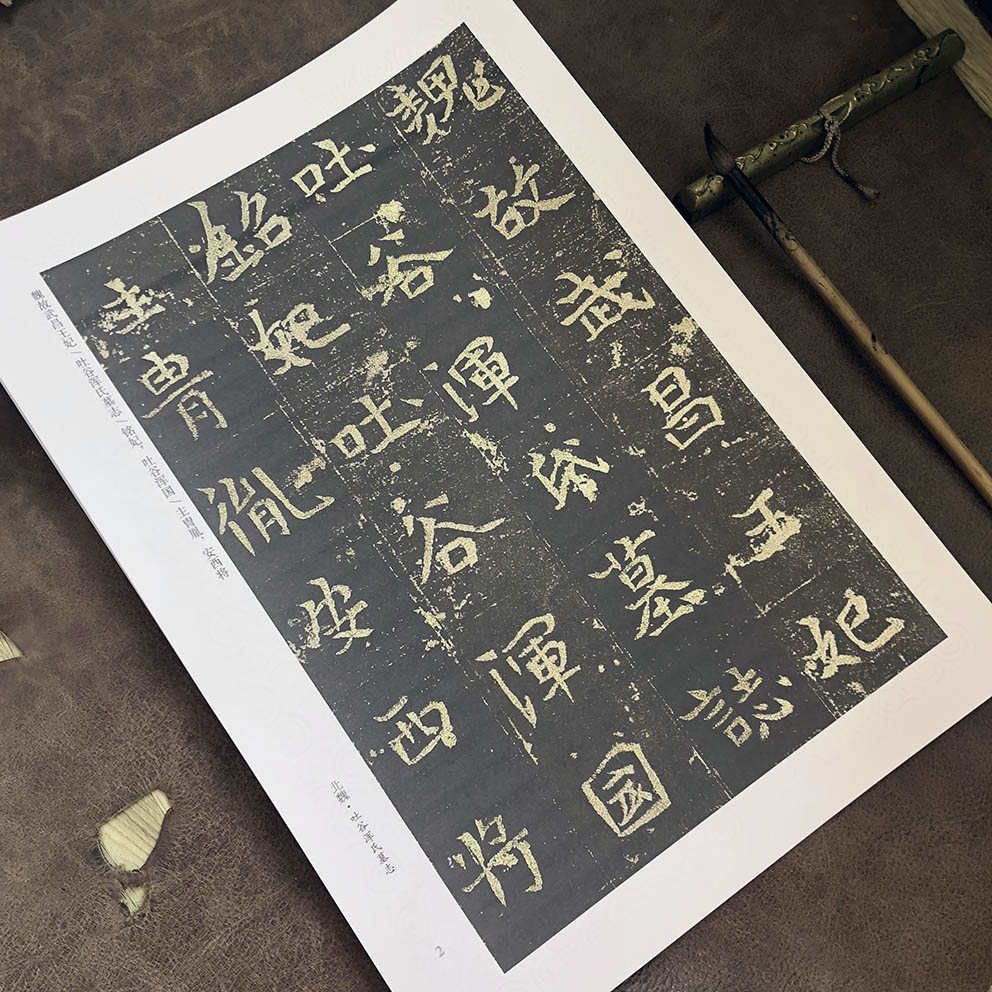 魏故武昌王妃
吐谷渾氏墓誌
銘妃吐谷渾國
主胄胤安西将
魏故武昌王妃/吐谷浑氏墓志/铭妃，吐谷浑国/主胄胤，安西将
北魏·吐谷浑氏墓志
2